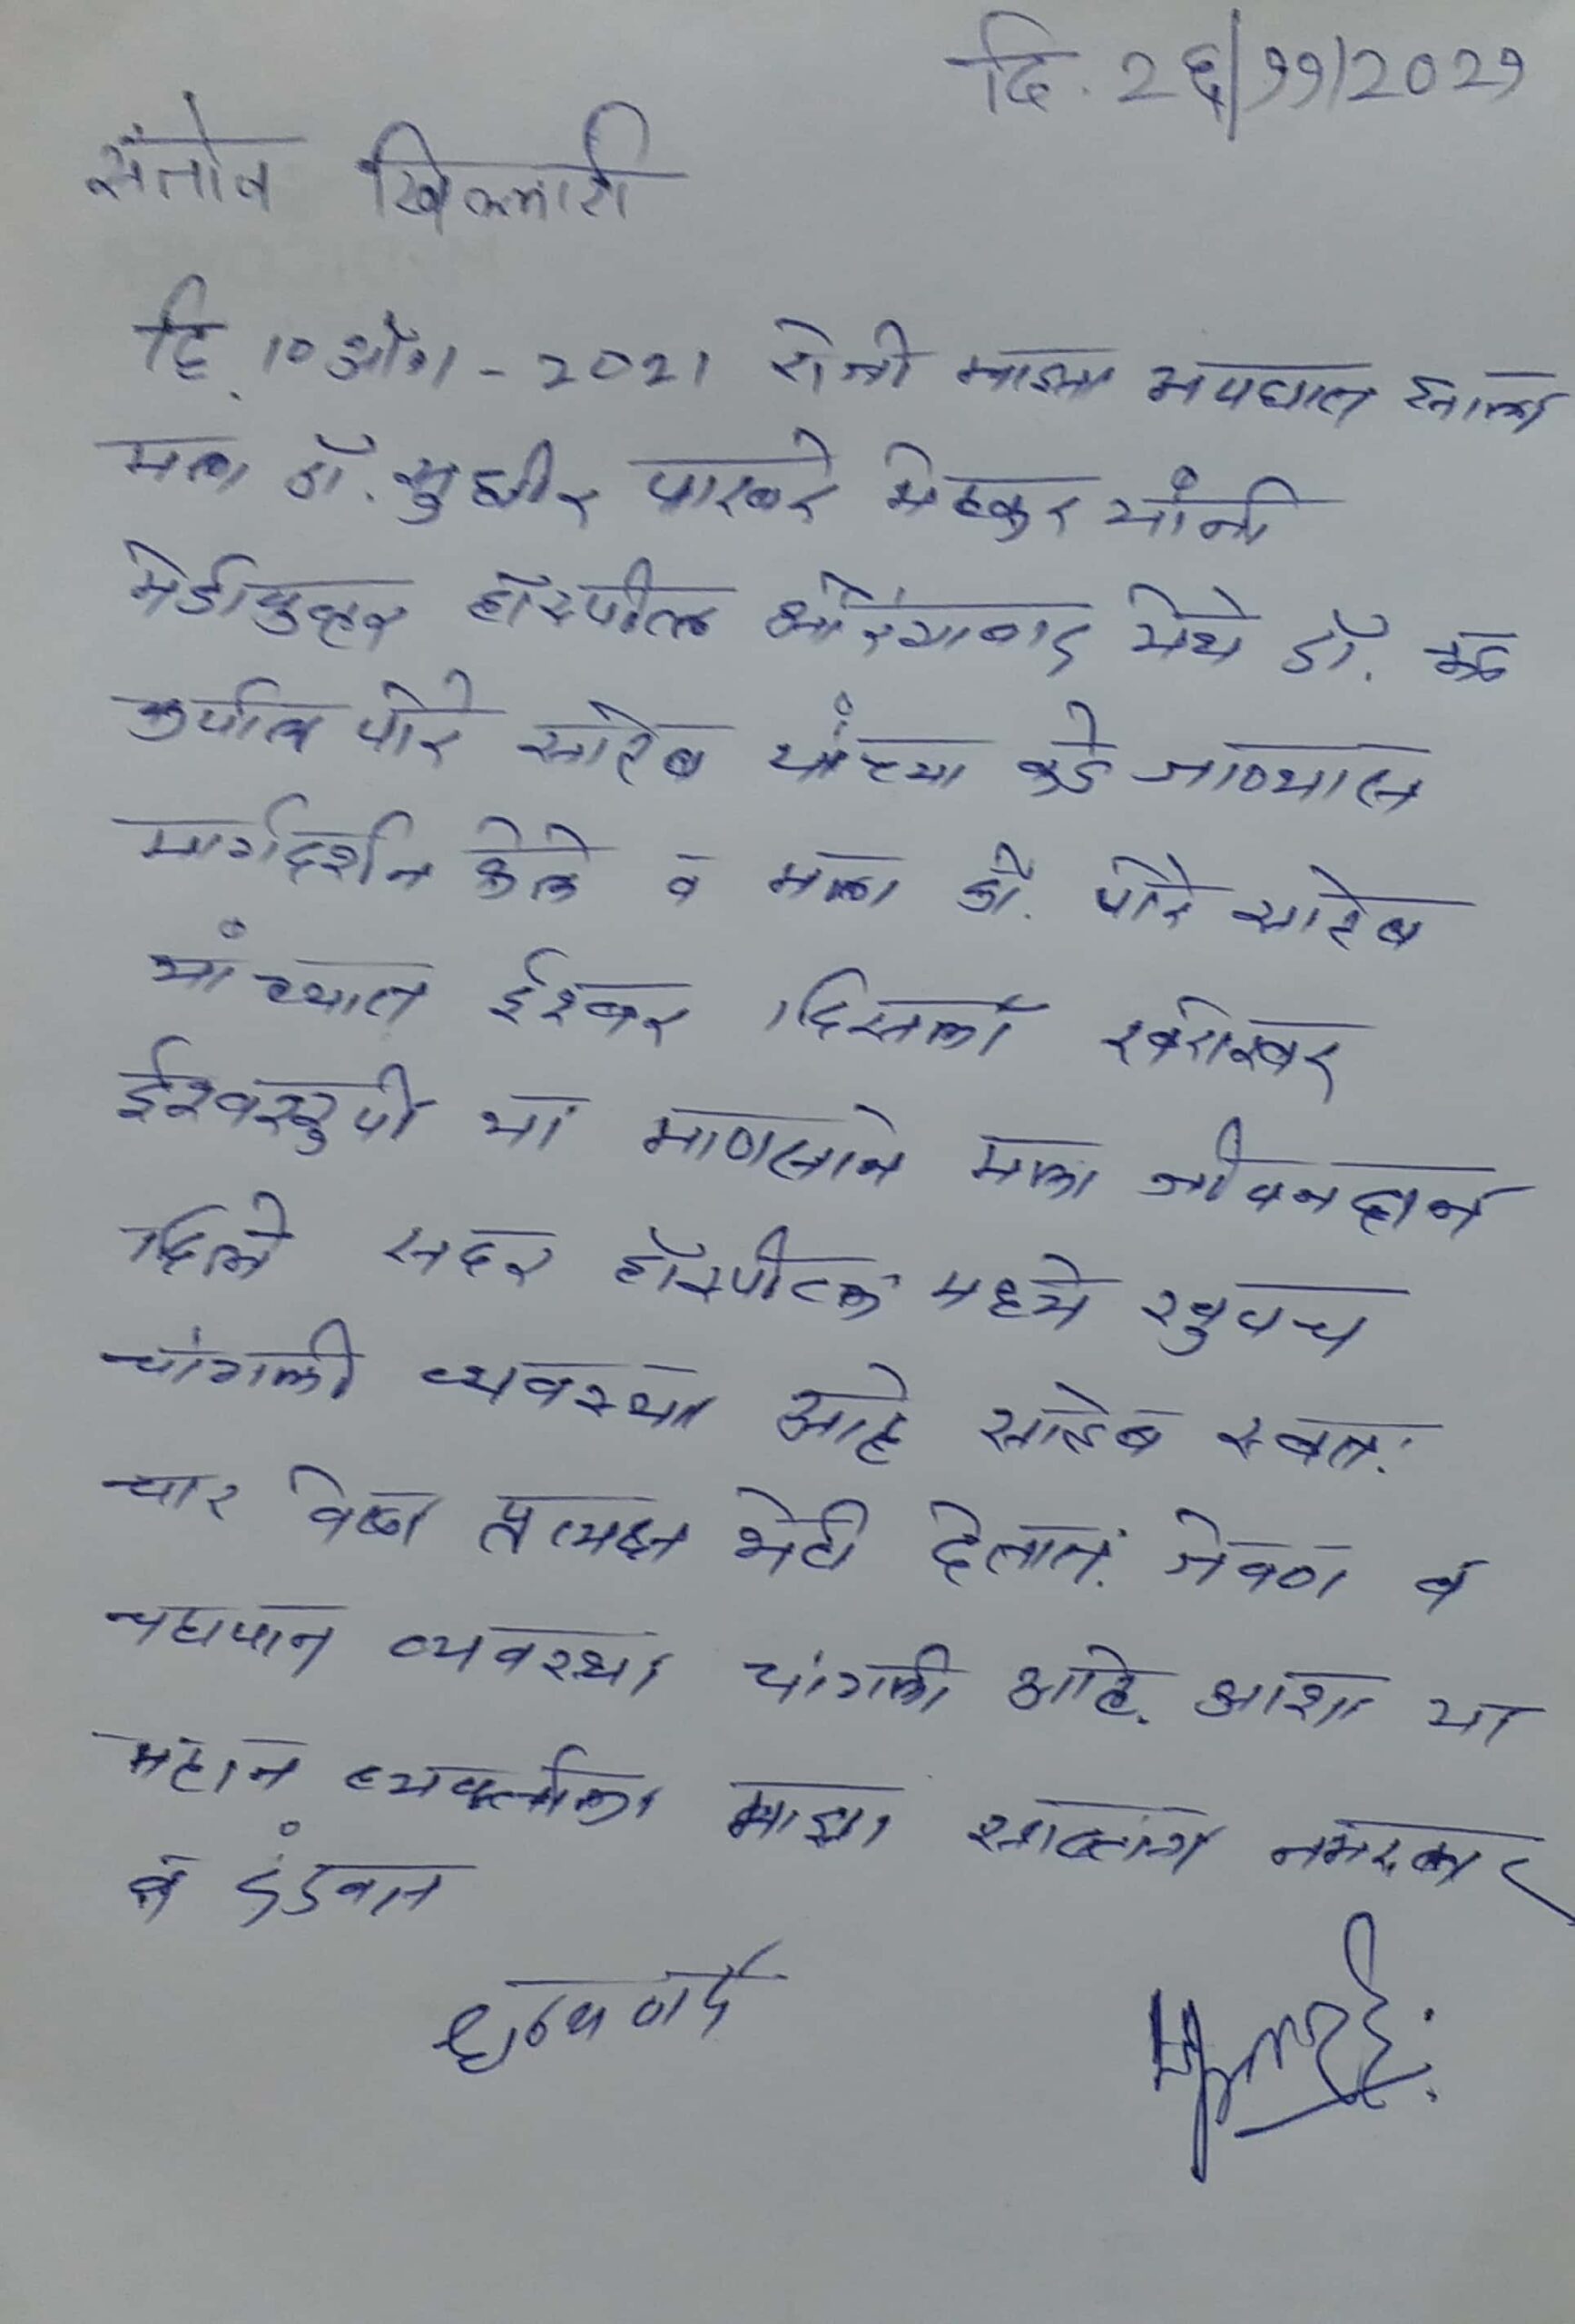 दि. २६/११/२०२१
संतोष खिल्लारी
दि. 10 ऑग - 2021 रोजी माझा अपघात झाला
मला डॉ. सुधीर पारवे मेहकर यांनी
मेडीकुव्हर हॉस्पीटल औरंगाबाद येथे डॉ.
कृपाल पोरे साहेब यांच्या कडे जाण्यास
मार्गदर्शन केले व मला डॉ. पोरे साहेब
यांच्यात ईश्वर दिसला खरोखर
ईश्वररुपी या माणसाने मला जीवनदान
दिले सदर हॉस्पीटल मध्ये खुपच
चांगली व्यवस्था आहे साहेब स्वतः
चार वेळा प्रत्यक्ष भेटी देतात. जेवण व
चहापान व्यवस्था चांगली आहे. आशा या
महान व्यक्तीला माझा साष्टांग नमस्कार
व दंडवत
धन्यवाद